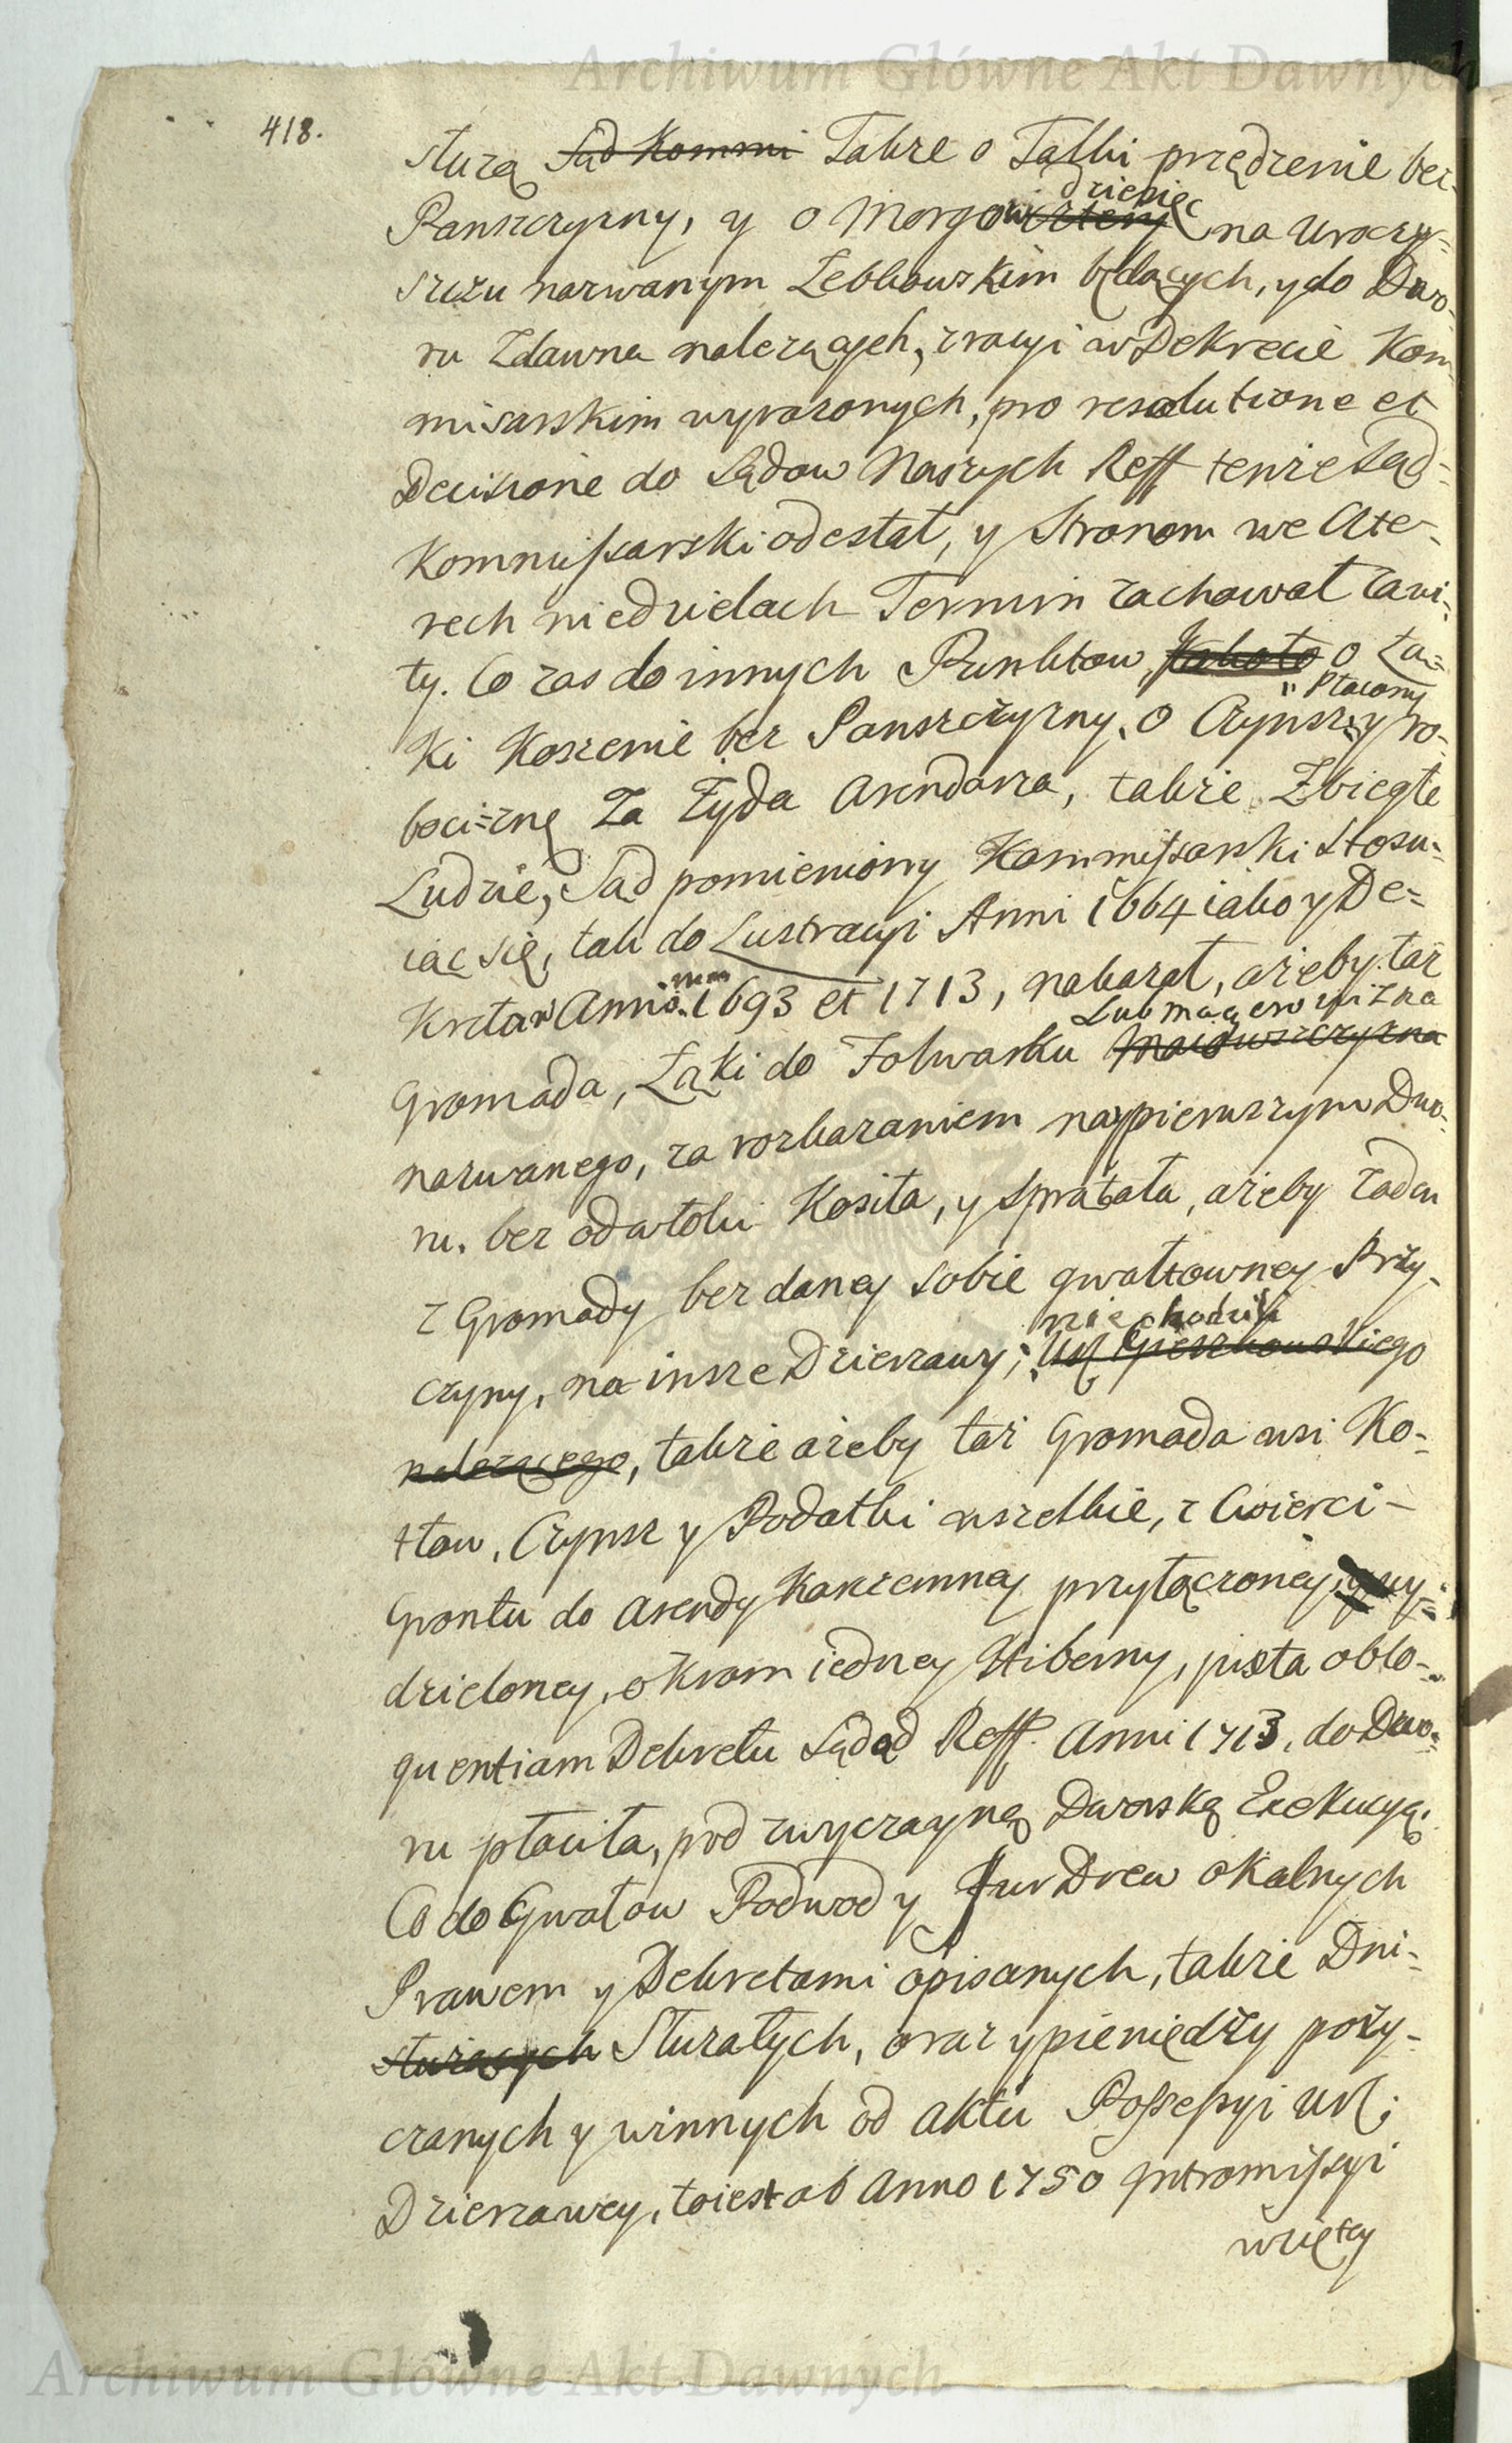 Archiwum Główne Akt Dawnych
418.
sturą Sąd Kommi Także o Talki przędzenie bez-
Panszczyzny, y o Morgow cztery dziesięć na Uroczy-
szczu nazwanym Łebkowskim będących, y do Dwo-
ru Zdawna należących, z racyi w Dekrecie Kom-
misarskim wyrazonych, pro resolutione et
Decisione do Sądow Naszych Reff tenże Sąd-
Kommissarski odesłał, y Stronom we czte-
rech niedzielach Termin zachował zawi-
ty. Co zas do innych Punktow, jakoto o Łą-
ki Koszenie bez Panszczyzny, o Czynsz płacony y ro-
bociznę Za Żyda Arendarza, także Zbiegłe
Ludzie, Sąd pomieniony Kommissarski Stosu-
iąc się, tak do Lustracyi Anni 1664 iako y De-
kretow Annorum 1693 et 1713, nakazał, ażeby taż
Gromada, Łąki do Folwarku Maiowszczyzna Lub maiąerowizna
nazwanego, za rozkazaniem naypierwszym Dwo-
ru, bez odwłoki Kosiła, y Sprątała, ażeby żaden
z Gromady bez daney sobie gwałtowney Przy-
czyny, na insze Dzierzawy, nie chodził Ur Cieszkowskiego
należącego, także ażeby taż Gromada wsi Ko-
tłow, Czynsz y Podatki wszelkie, z Cwierci-
Grontu do Arendy Karczemney przyłączoney, y wy-
dzieloney, okrom iedney Hiberny, juxta oblo-
quentiam Dekretu Sądod Reff. Anni 1713, do Dwo-
ru płaciła, pod zwyczayną Dworską Exekucyą.
Co do Gwałtow Podwod y Fur Drew okalnych
Prawem y Dekretami opisanych, także Dni-
sturacych Sturałych, oraz y pieniędzy poży-
czanych y winnych od aktu Possessyi Ur;
Dzierzawcy, toiest ab Anno 1750 Intromissyi
wzięty
Archiwum Główne Akt Dawnych